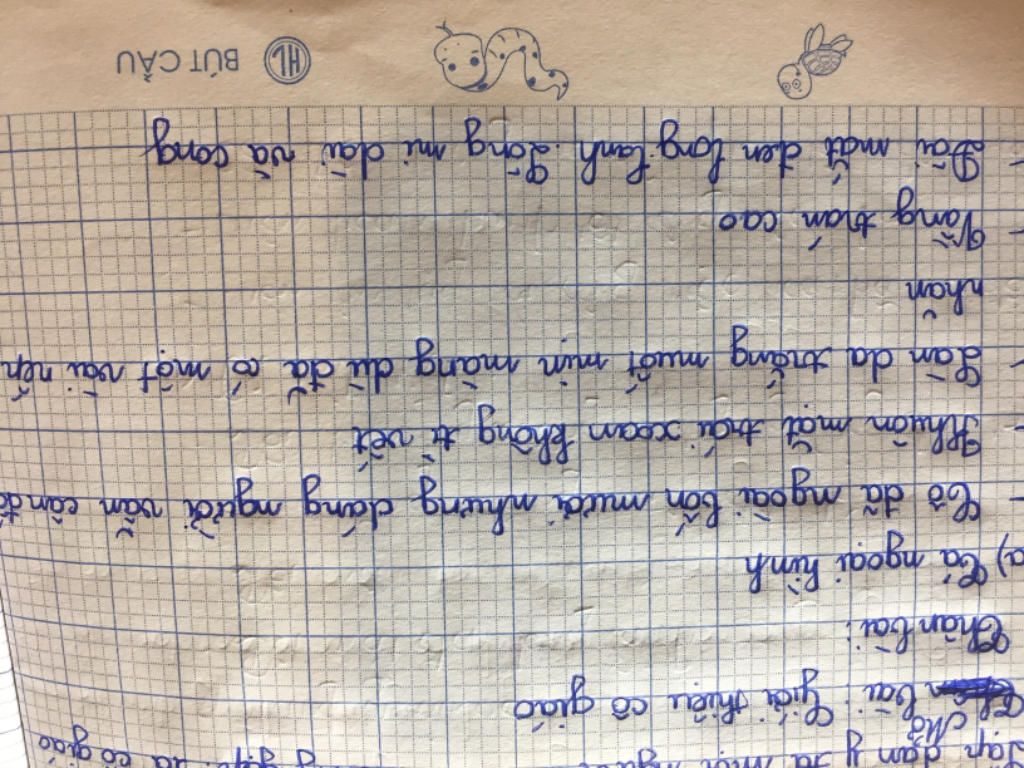 Lập dàn ý tả một tả cô giáo
Mở bài: Giới thiệu cô giáo
Thân bài:
a) Tả ngoại hình
- Cô đã ngoài bốn mươi nhưng dáng người vẫn cân đố
- Khuôn mặt trái xoan không tì vết
- Làn da trắng muốt mịn màng dù đã có một vài nếp
nhăn
- Vầng trán cao
- Đôi mắt đen long lanh. Lông mi dài và cong
HL BÚT CẦU